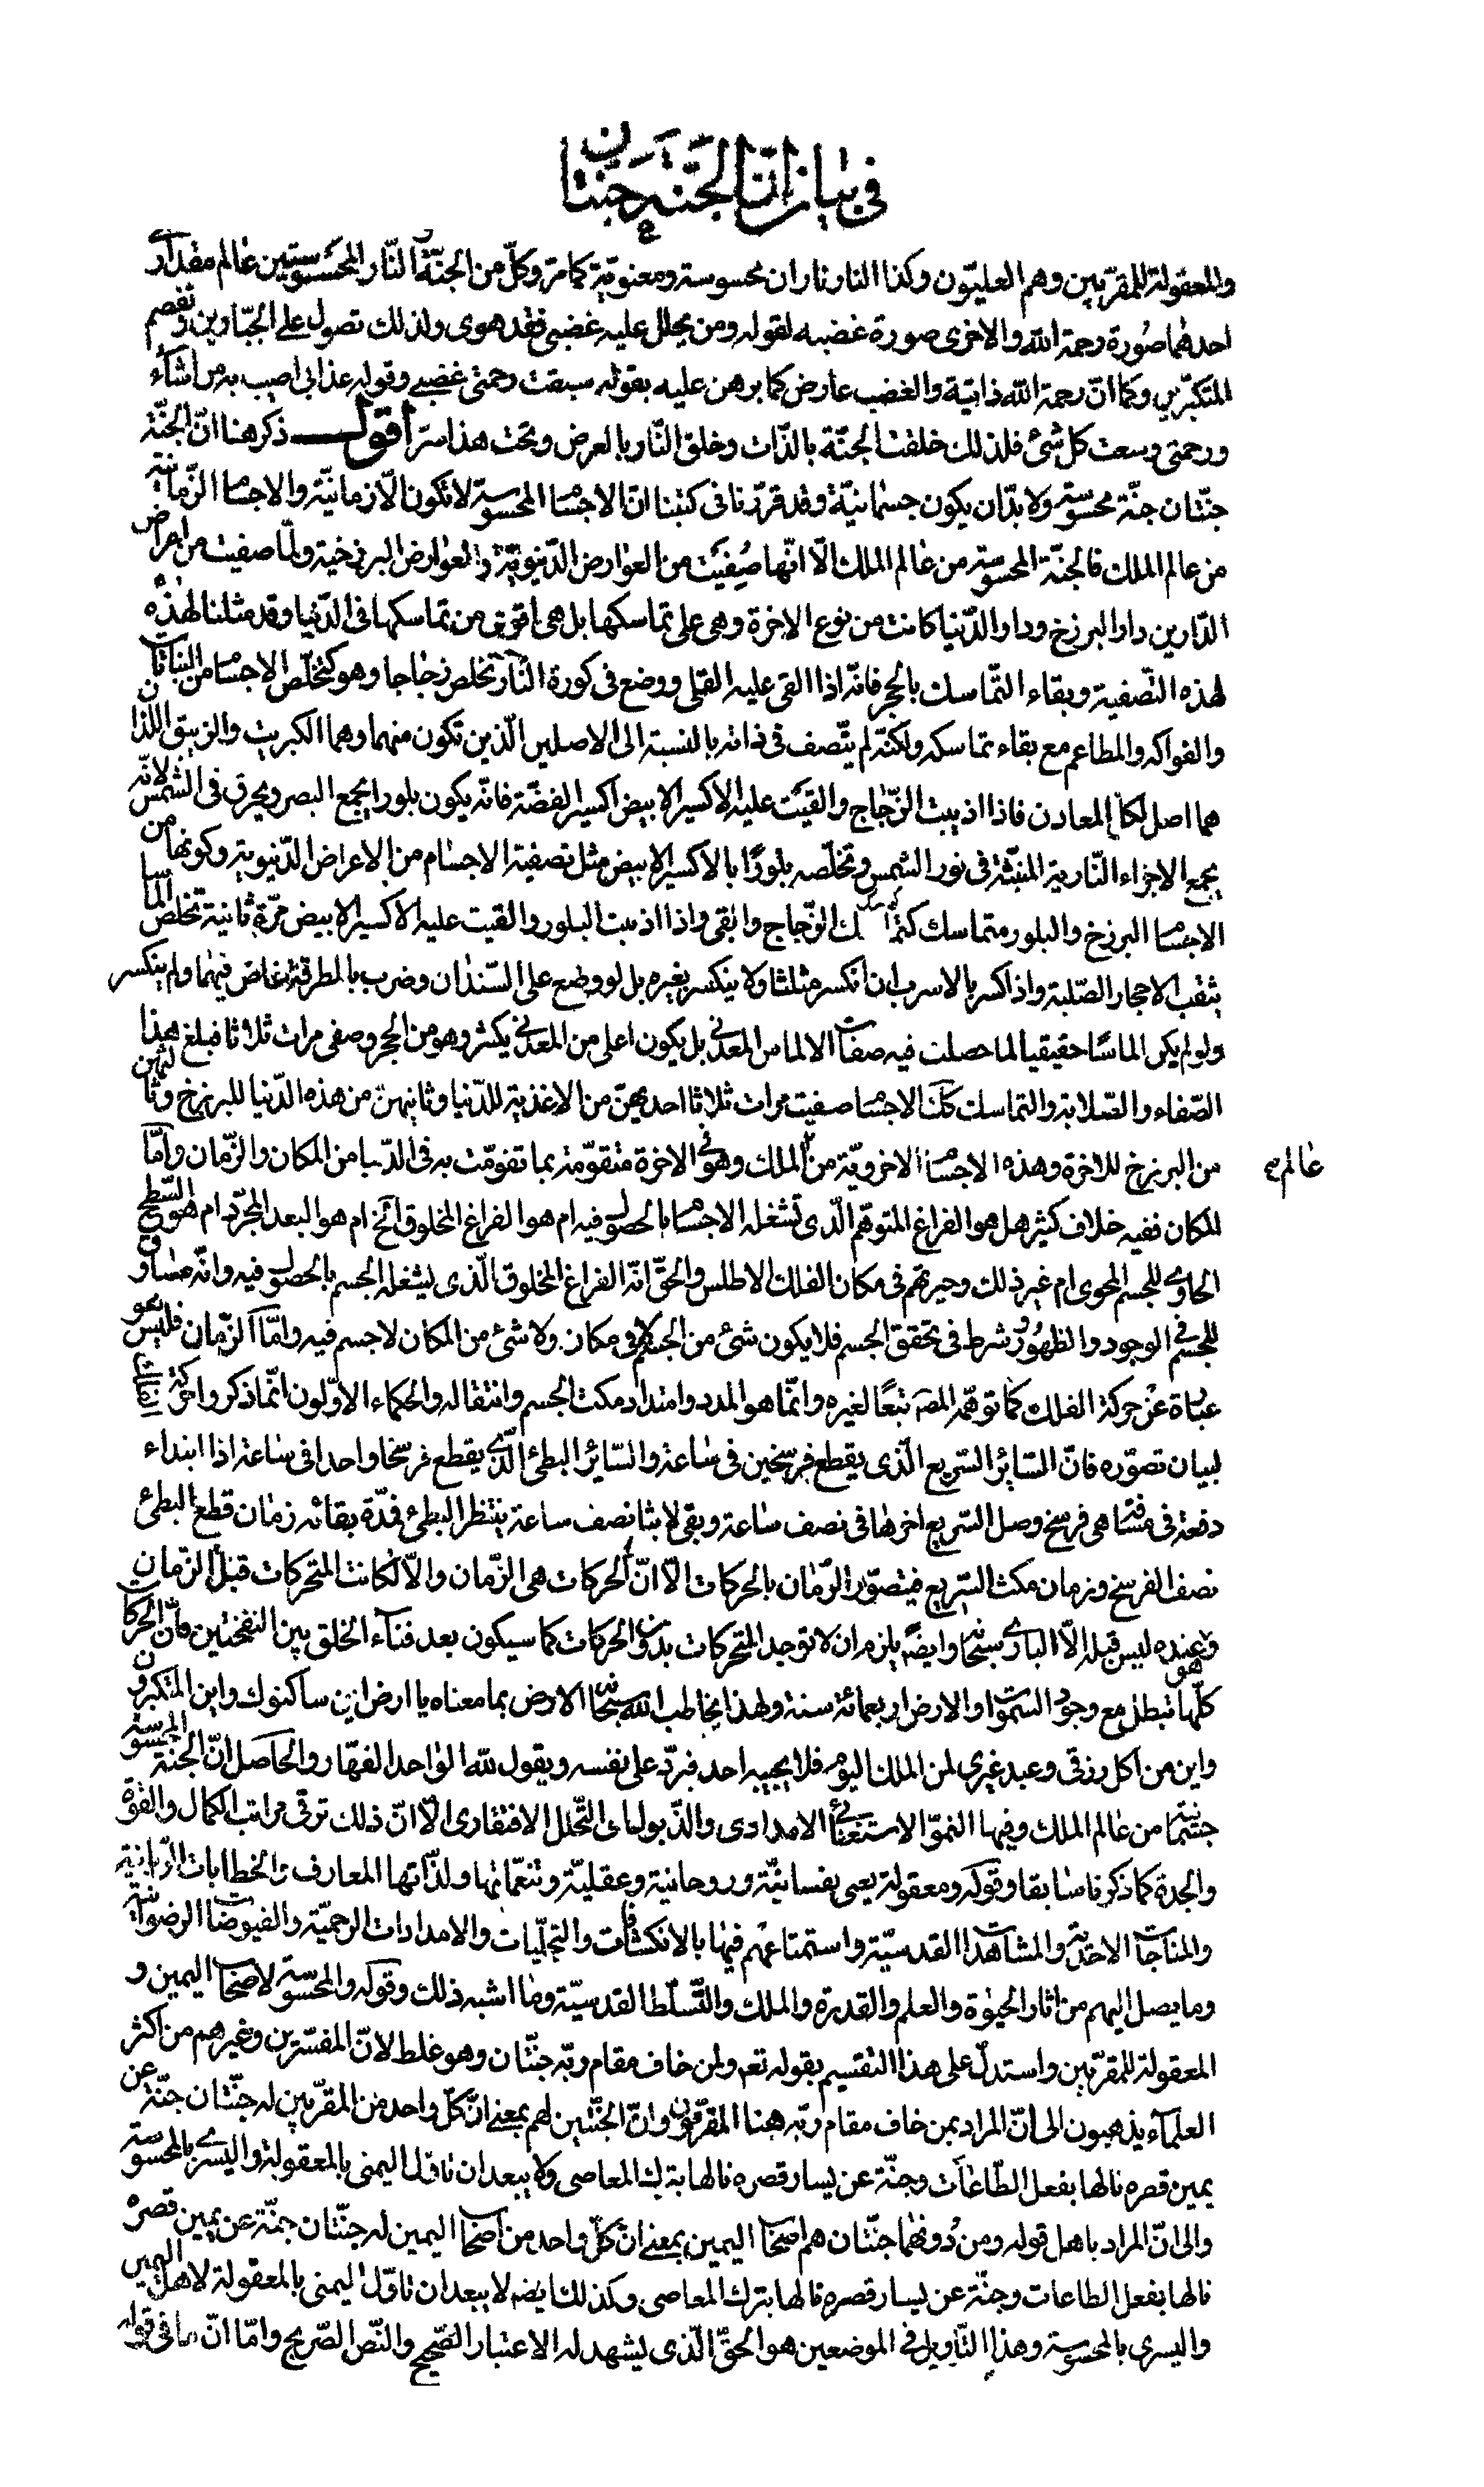 في بيان ان الجنة جنتان
والمعقولة للمقربين وهم العليّون وكذا النار ناران محسوسة ومعنويّة كما مرّ وكلّ من الجنّة والنّار المحسوستين عالم مقدارى
احدهما صورة رحمة الله والاخرى صورة غضبه لقوله ومن يحلل عليه غضبى فقد هوى ولذلك تصول على الجبّارين وتقصم
المتكبّرين وكما انّ رحمة الله ذاتية والغضب عارض كما برهن عليه بقوله سبقت رحمتى غضبى وقوله عذابى اصيب به من اشاء
ورحمتى وسعت كل شئ فلذلك خلقت الجنّة بالذّات وخلق النّار بالعرض وتحت هذا سرّ اقول ذكر هنا انّ الجنّة
جنّتان جنّة محسوسة ولا بدّ ان يكون جسمانيّة وقد قرّرنا فى كتبنا انّ الاجسام المحسوسة لا تكون الّا زمانيّة والاجسام الزّمانية
من عالم الملك فالجنّة المحسوسة من عالم الملك الّا انّها صُفِيَت من العوارض الدّنيويّة والعوارض البرزخية ولمّا صفيت من اعراض
الدّارين دار البرزخ ودار الدّنيا كانت من نوع الاخرة وهى على تماسكها بل هى اقوى من تماسكها فى الدّنيا وقد مثلنا لهذه
لهذه التّصفية وبقاء التّماسك بالحجر فانّه اذا القى عليه القلى ووضع فى كورة النّار تخلص زجاجا وهو كتخلّص الاجسام من النباتات
والفواكه والمطاعم مع بقاء تماسكه ولكنّه لم يتّصف فى ذاته بالنسبة الى الاصلين الّذين تكون منهما وهما الكبريت والزيبق اللّذان
هما اصل لكل المعادن فاذا اذيبت الزّجاج والقيَت عليه الاكسير الابيض اكسير الفضّة فانّه يكون بلورا يجمع البصر ويحرق فى الشمس لانّه
يجمع الاجزاء النّارية المنبثّة فى نور الشمس وتخلّصه بلورًا بالاكسير الابيض مثل تصفية الاجسام من الاعراض الدّنيوية وكونها من
الاجسام البرزخ والبلور متماسك الزّجاج وابقى واذا اذيبت البلور والقيت عليه الاكسير الابيض مرّة ثانية تخلص الماسا
يثقب الاحجار الصّلبة واذا كسر بالاسرب ان انكسر مثلثا ولا ينكسر بغيره بل لو وضع على السّندان وضرب بالمطرقة غاص فيهما ولم ينكسر
ولو لم يكن الماسًا حقيقيا لما حصلت فيه صفات الالماس المعدنىّ بل يكون اعلى من المعدنى بكثير وهو من الحجر وصفى مرات ثلاثا فبلغ هذا
الصّفاء والصّلابة والتماسك كذلك الاجسام صفيت مرات ثلاثا احديهنّ من الاغذية للدّنيا وثانيهنّ من هذه الدّنيا للبرزخ وثالثهن
من البرزخ للاخرة وهذه الاجسام الاخرويّة من الملك وهى فى الاخرة متقوّمة بما تقومت به فى الدّنيا من المكان والزّمان وامّا
عالم
المكان ففيه خلاف كثير هل هو الفراغ المتوهّم الّذى تشغله الاجسام بالحصول فيه ام هو الفراغ المخلوق الخ ام هو البعد المجرّد ام هو السّطح
الحاوى للجسم المحوى ام غير ذلك وحيرتهم فى مكان الفلك الاطلس والحقّ انّه الفراغ المخلوق الّذى يشغله الجسم بالحصول فيه وانّه مساوق
للجسم فى الوجود والظهور وشرط فى تحقق الجسم فلا يكون شئ من الجسم لا فى مكان ولا شئ من المكان لا جسم فيه وامّا الزّمان فليس هو
عبارة عن حركة الفلك كما توهّمه المصَ تبعًا لغيره وانّما هو المدد وامتداد مكث الجسم وانتقاله والحكماء الاوّلون انّما ذكروا حركة
لبيان تصوّره فانّ السّائر السّريع الّذى يقطع فرسخين فى ساعة والسّائر البطئ الّذى يقطع فرسخا واحدا فى ساعة اذا ابتداء
دفعة فى مسافة هى فرسخ وصل السّريع اخرها فى نصف ساعة وبقى لابثا نصف ساعة ينتظر البطئ فمدّة بقائه زمان قطع البطئ
نصف الفرسخ وزمان مكث السّريع فيتصوّر الزّمان بالحركات الّا انّ الحركات هى الزّمان والّا لكانت المتحركات قبل الزّمان
وعنده ليس قبله الّا البارى سبحانه وايضًا يلزم ان لا توجد المتحركات بدون الحركات كما سيكون بعد فناء الخلق بين النفختين فانّ الحركات
كلّها تبطل مع وجود السّموات والارض اربعمائة سنة ولهذا يخاطب الله سبحانه الارض بما معناه يا ارض اين ساكنوك واين المتكبرون
واين من اكل رزقى وعبد غيرى لمن الملك اليوم فلا يجيبه احد فيردّ على نفسه ويقول لله الواحد القهّار والحاصل انّ الجنّة المحسوسة
جسمانيّة من عالم الملك وفيها النموّ الاستغنائى الامدادى والذّبول اى التّحلل الافتقارى الّا انّ ذلك ترقى مراتب الكمال والقوّة
والجدة كما ذكرنا سابقا وقوله ومعقولة يعنى نفسانيّة وروحانية وعقليّة وتنعّماتها ولذّاتها المعارف والخطابات الرّبانية
والمناجات الاحديّة والمشاهدات القدسيّة واستمتاعهم فيها بالانكشافات والتجلّيات والامدادات الرحميّة والفيوضات الرضوانية
وما يصل اليهم من اثار الحيوة والعلم والقدرة والملك والتّسلّط القدسيّة وما اشبه ذلك وقوله والمحسوسة لاصحاب اليمين و
المعقولة للمقرّبين واستدلّ على هذا التقسيم بقوله تعم ولمن خاف مقام ربّه جنّتان وهو غلط لانّ المفسّرين وغيرهم من اكثر
العلماء يذهبون الى انّ المراد بمن خاف مقام ربّه هنا المقرّبون وانّ الجنّتين لهم بمعنى انّ كلّ واحد من المقرّبين له جنّتان جنّة عن
يمين قصره نالها بفعل الطّاعات وجنّة عن يسار قصره نالها بترك المعاصى ولا يبعد ان تاوّل اليمنى بالمعقولة واليسرى بالمحسوسة
والى انّ المراد باهل قوله ومن دونهما جنّتان هم اصحاب اليمين بمعنى انّ كلّ واحد من اصحاب اليمين له جنّتان جنّة عن يمين قصره
نالها بفعل الطاعات وجنّة عن يسار قصره نالها بترك المعاصى وكذلك ايضا لا يبعد ان تاوّل اليمنى بالمعقولة لاهل اليمين
واليسرى بالمحسوسة وهذا التّاويل فى الموضعين هو الحقّ الّذى يشهد له الاعتبار الصّحيح والنّص الصّريح وامّا انّ ما فى قوله